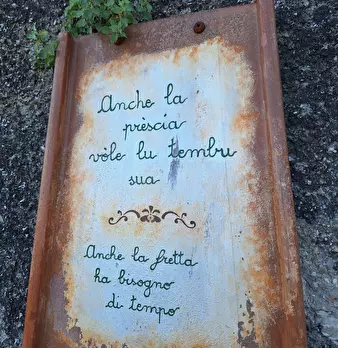 Anche la
prèscia
vòle lu tembu
sua
Anche la fretta
ha bisogno
di tempo